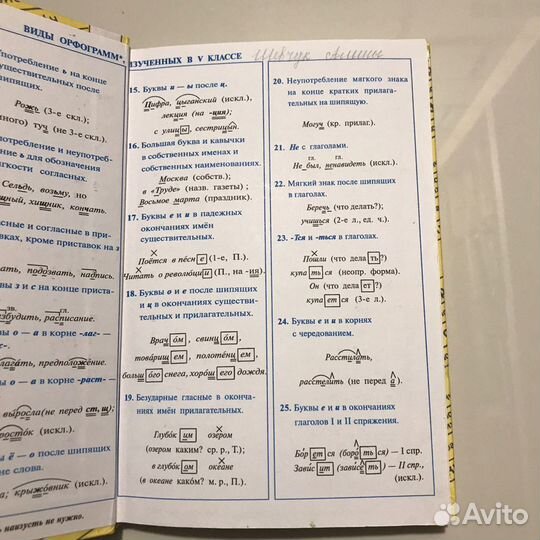 ВИДЫ ОРФОГРАММ*,
ИЗУЧЕННЫХ В V КЛАССЕ
потребление ь на конце
существительных после
шипящих.
Рожь (3-е скл.)
туч (не 3-е скл.)
потребление и неупотреб-
ление ь для обозначения
мягкости согласных.
Сельдь, возьму, но
хищник, кончать.
гласные и согласные в при-
ставках, кроме приставок на з
поддозвать, надпись.
вы з и с на конце приста-
зв. гл.
збудить, расписание.
вы о — а в корне -лаг- —
лагать, предположение.
вы о — а в корне -раст- —
выросла (не перед ст, щ);
росток (искл.).
вы ё — о после шипящих
не слова.
крыжовник (искл.).
наизусть не нужно.
15. Буквы и — ы после ц.
Цифра, цыганский (искл.).
лекция (на -ция);
с улицы, сестрицын.
16. Большая буква и кавычки
в собственных именах и
собственных наименованиях.
Москва (собств.);
в «Труде» (назв. газеты) ;
Восьмое марта (праздник).
17. Буквы е и и в падежных
окончаниях имён
существительных.
Поётся в песне (1-е, П.).
Читать о революции (П., на -ия).
18. Буквы о и е после шипящих
и ц в окончаниях существи-
тельных и прилагательных.
Врачом, свинцом,
товарищем, полотенцем,
большого снега, хорошего дождя.
19. Безударные гласные в оконча-
ниях имён прилагательных.
Глубоким озером
(озером каким? ср. р., Т.);
в глубоком океане
(в океане каком? м. р., П.).
20. Неупотребление мягкого знака
на конце кратких прилага-
тельных на шипящую.
Могуч (кр. прилаг.).
21. Не с глаголами.
гл. гл.
Не был, ненавидеть (искл.).
22. Мягкий знак после шипящих
в глаголах.
Беречь (что делать?);
учишься (2-е л., ед. ч.).
23. -Тся и -ться в глаголах.
Пошли (что делать?)
купаться (неопр. форма).
Он (что делает?)
купается (3-е л.).
24. Буквы е и и в корнях
с чередованием.
Расстилать,
расстелить (не перед а).
25. Буквы е и и в окончаниях
глаголов I и II спряжения.
Борется (бороться) — I спр.
Зависит (зависеть) — II спр.,
(искл.).
Avito